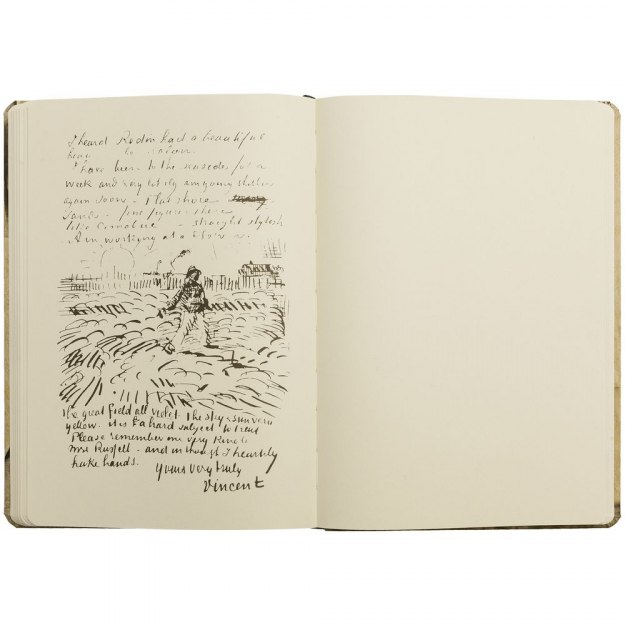 I heard Rodin had a beautiful
salon.
I have been to the seaside for a
week and very likely am going thither
again soon - Flat shore
sands - fine figures there
like Cimabue - straight stylish
Am working at a Sower
The great field all violet the sky & sun very
yellow. it is a hard subject to treat
Please remember me very to
Mrs Russell - and in thought I heartily
hake hands.
Yours very truly
Vincent